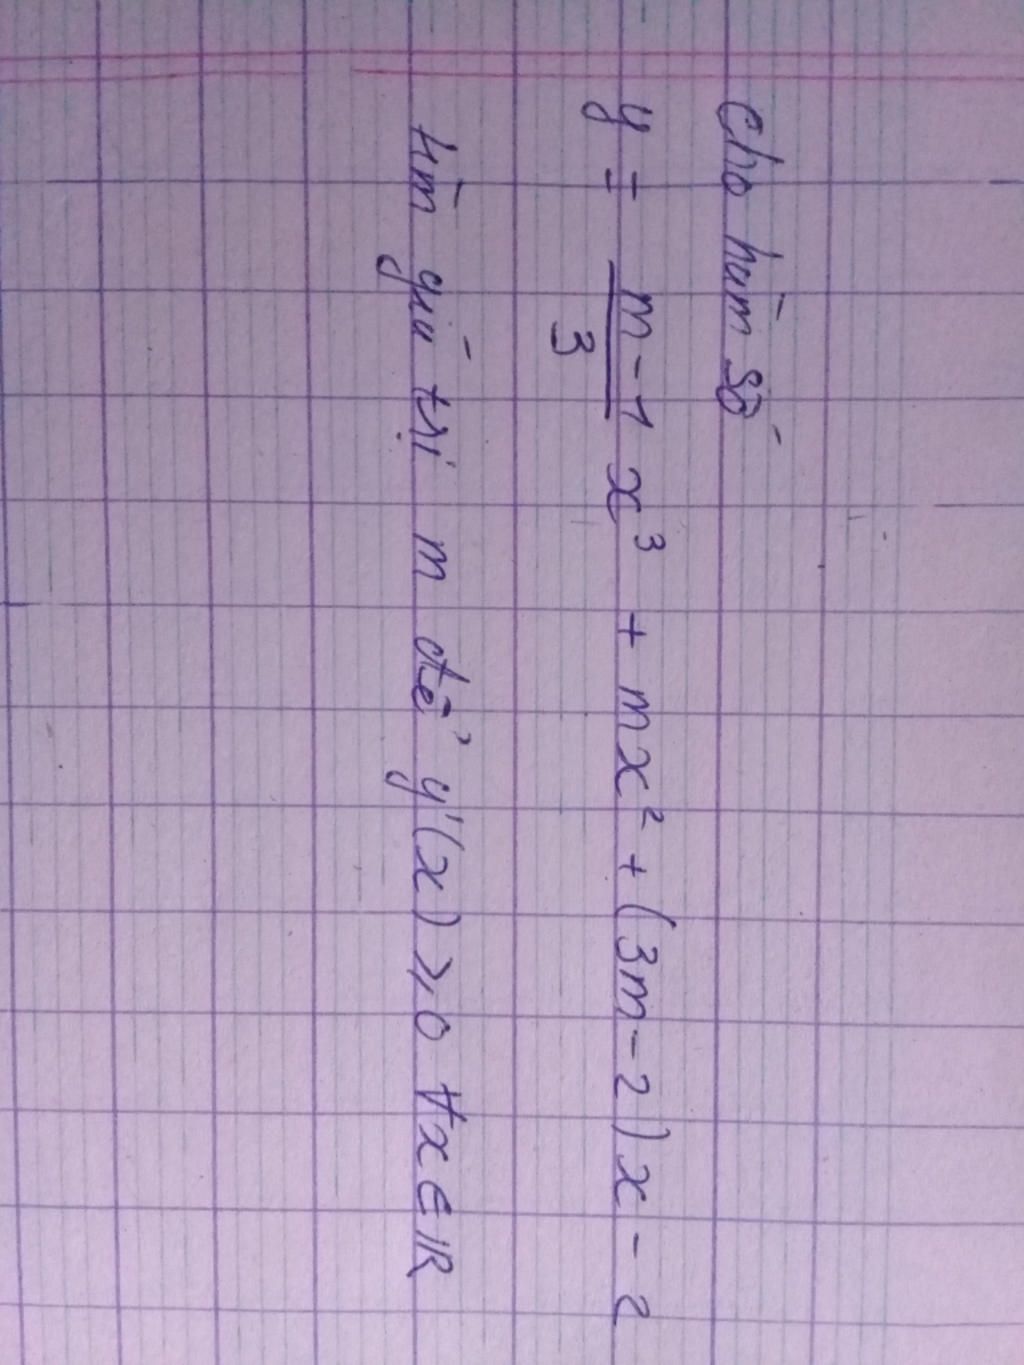 Cho hàm số
y = \frac{m-1}{3} x³ + mx² + (3m-2)x - 2
tìm giá trị m để y'(x) ⩾ 0 ∀x ∈ ℝ